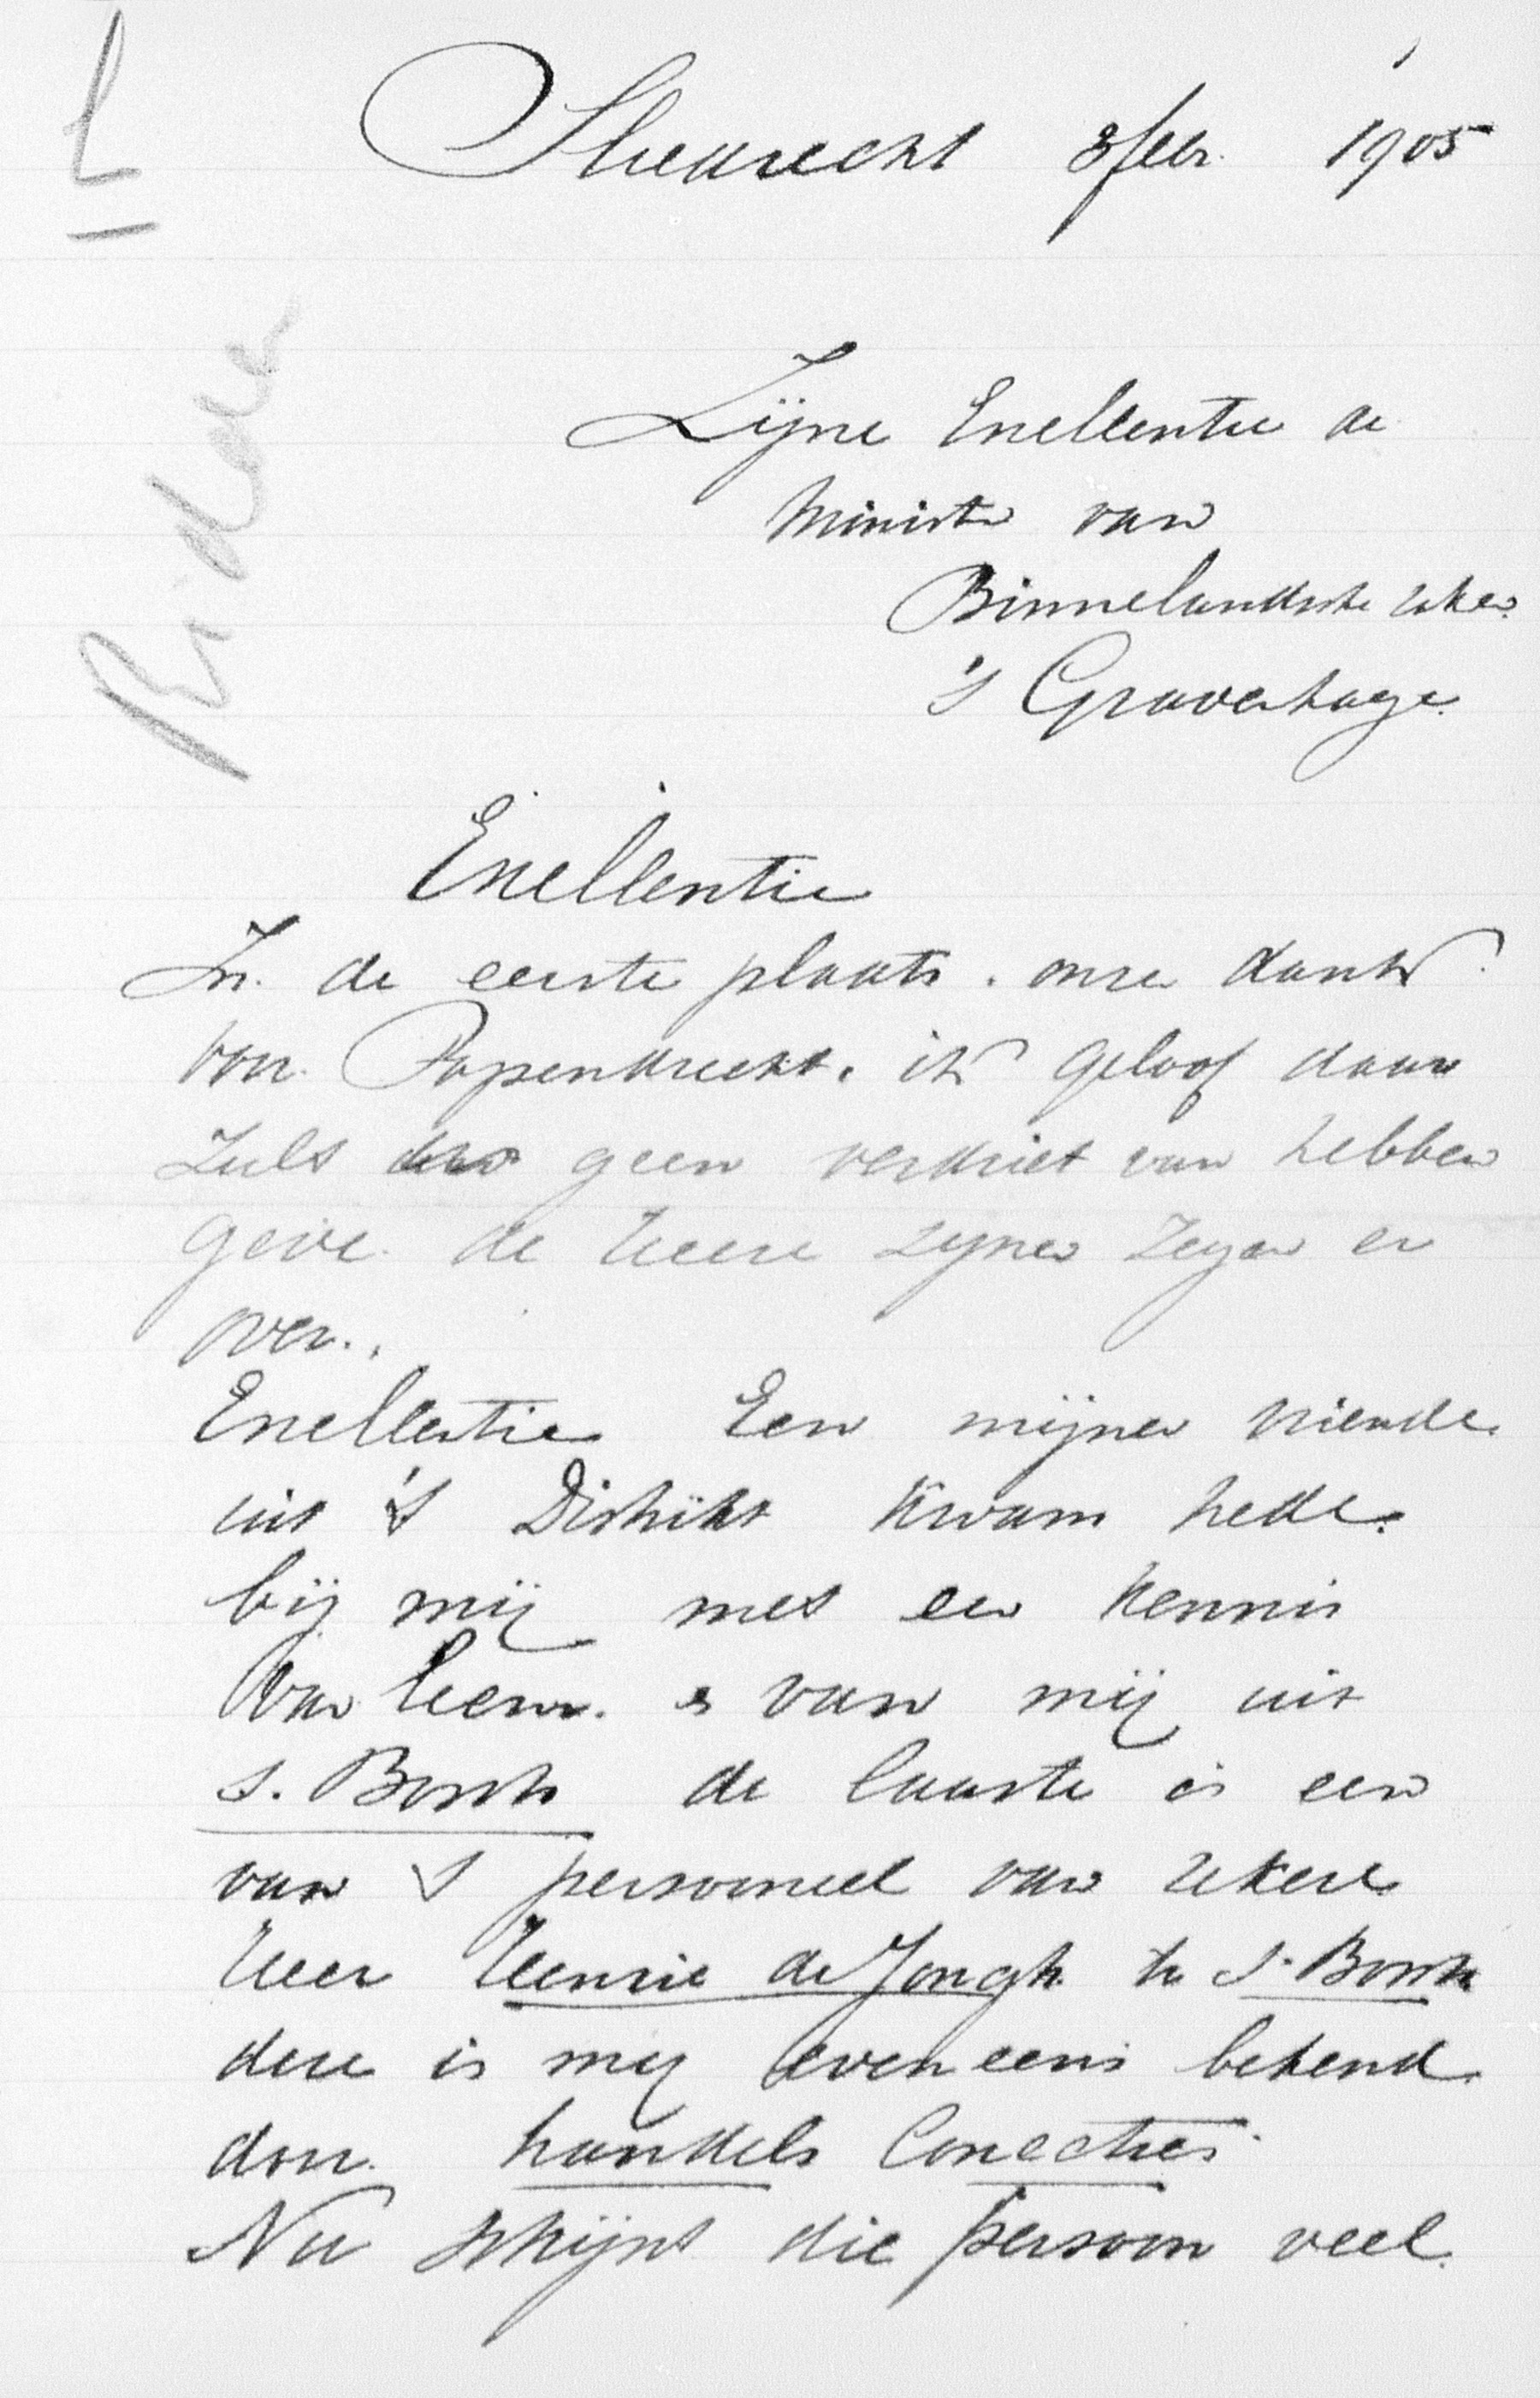 Sliedrecht 3 febr. 1905
Ridder
Zijne Excellentie de
Ministe van
Binnelandsche zaken
's Gravenhage
Excellentie
In de eerste plaats. onze dank
voor Papendrecht. ik geloof daar
zult geen verdriet van hebben
geve de Heere zynen Zegen er
over..
Excellentie Een mijner vriende
uit 's Distrikt kwam hede
bij mij met een kennis
van hem. e van mij uit
s. Bosch de laaste is een
van s personeel van zekere
Heer Henrie de Jongh te s. Bosch
deze is mij eveneens bekend
door handels Conecties
Nu schijnt die persoon veel